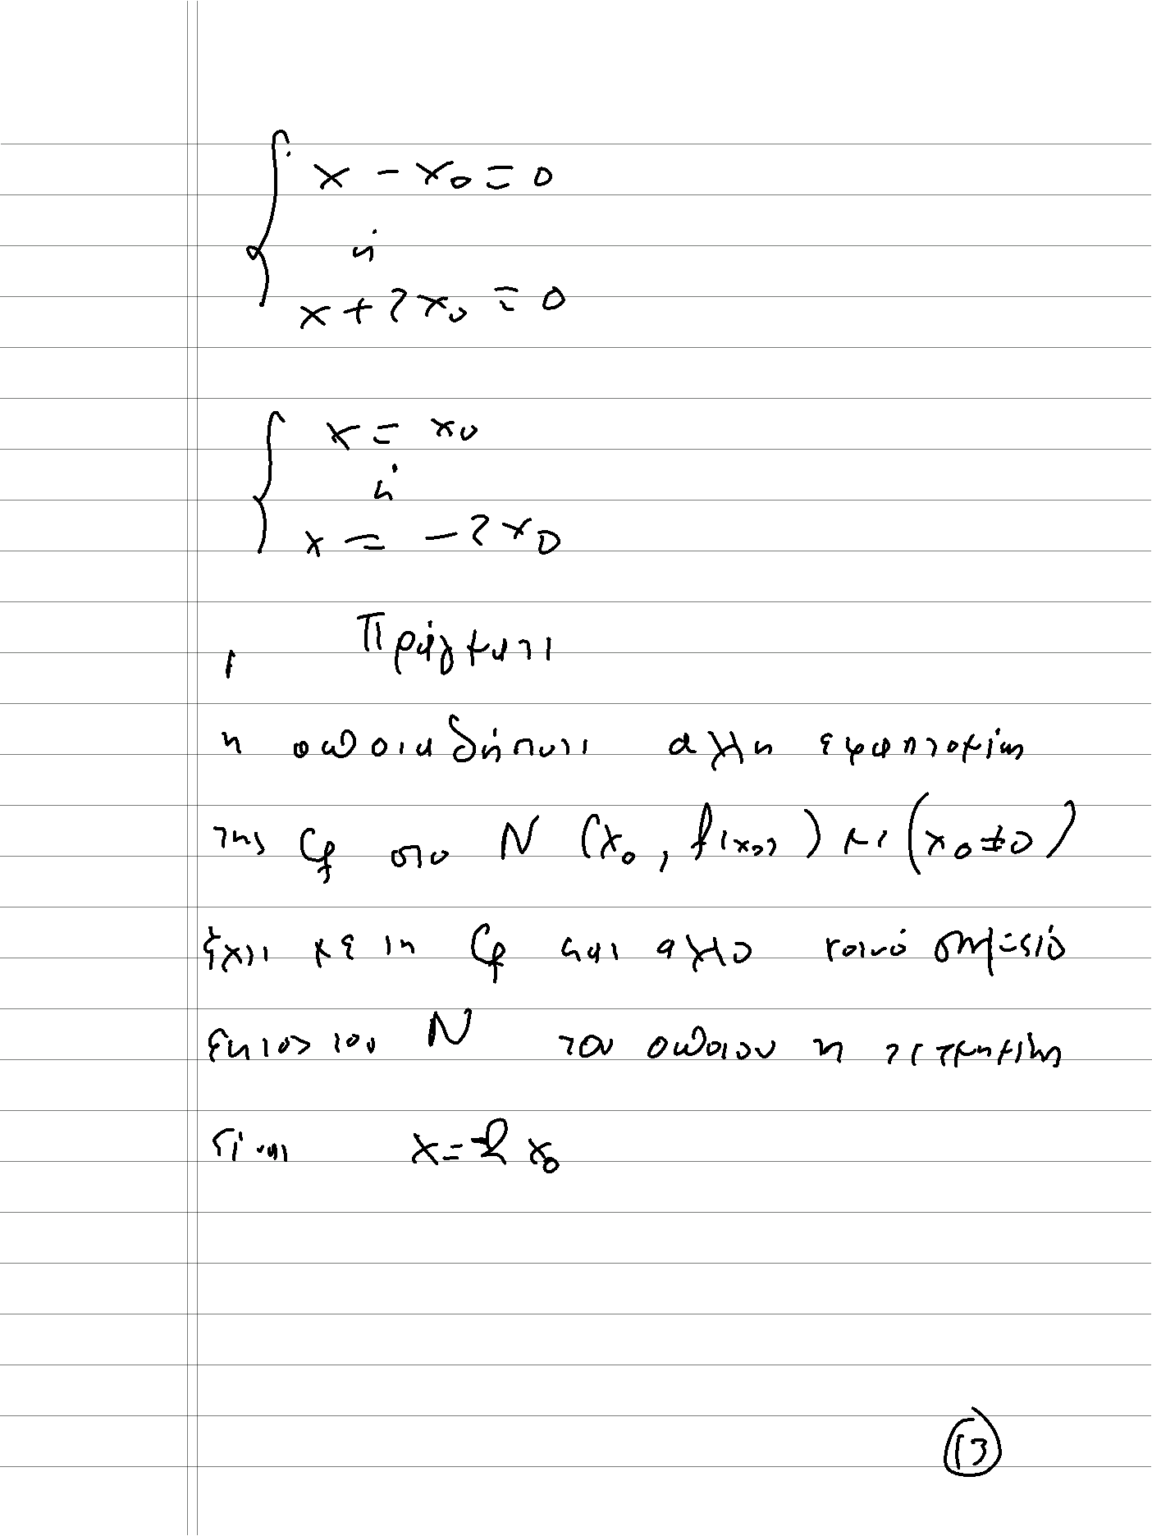 x - x₀ = 0
ή
x + 2x₀ = 0
x = x₀
ή
x = -2x₀
Πράγματι
η οποιαδήποτε αλλη εφαπτομένη
της Cf στο N (x₀, f(x₀)) με (x₀ ≠ 0)
έχει με τη Cf και αλλο κοινό σημείο
εκτος του N του οποιου η τετμημένη
είναι x = -2x₀
13